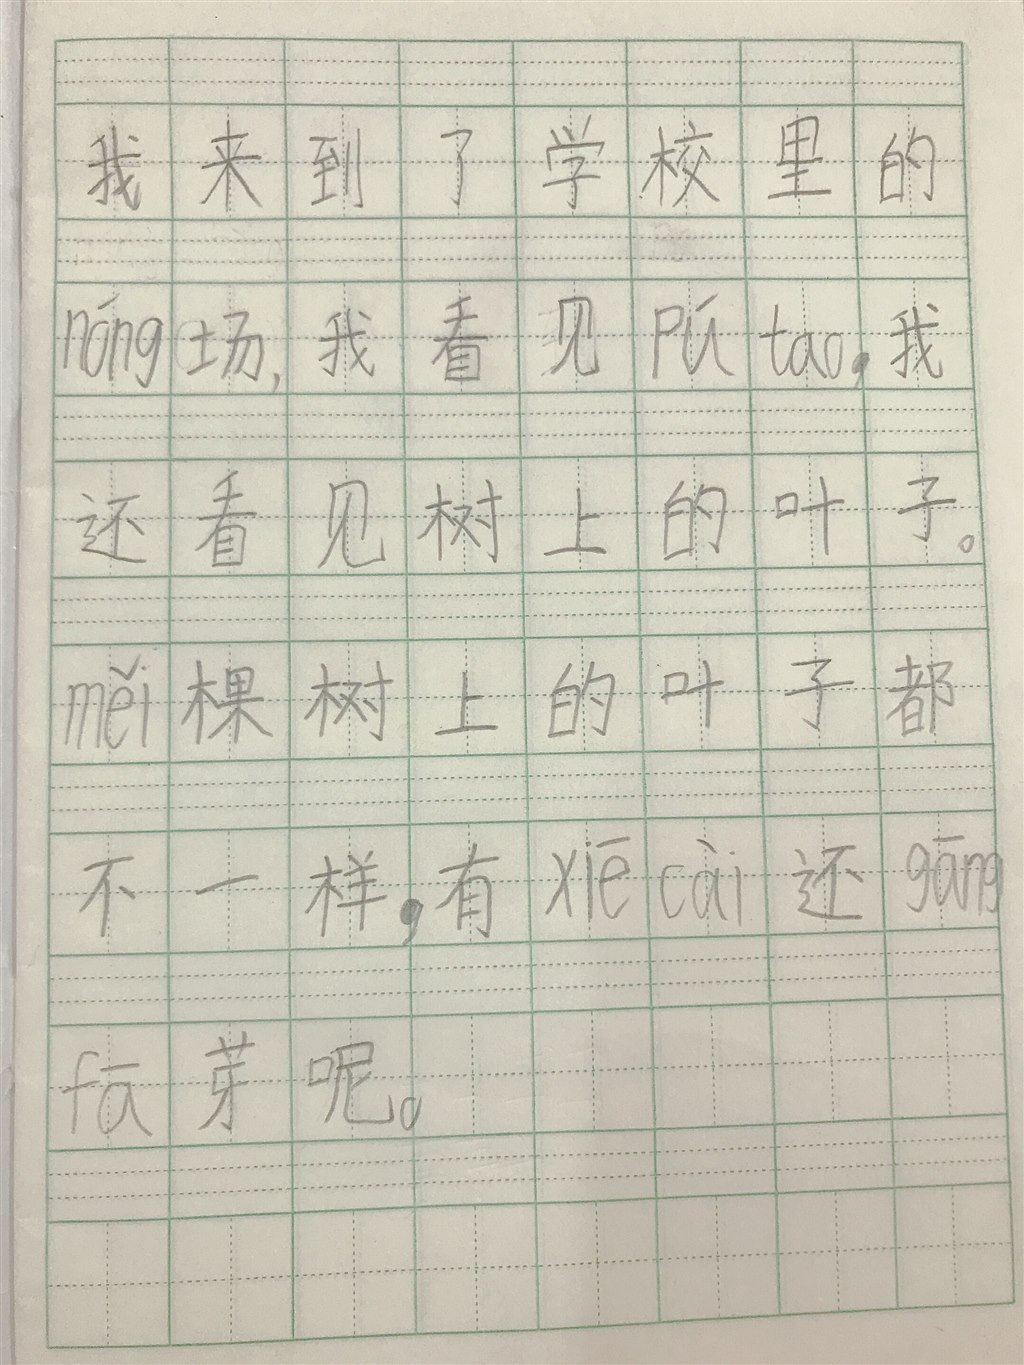 我来到了学校里的
nóng场,我看见Pú tao,我
还看见树上的叶子。
měi棵树上的叶子都
不一样,有xiē cài还gāng
fā芽呢。